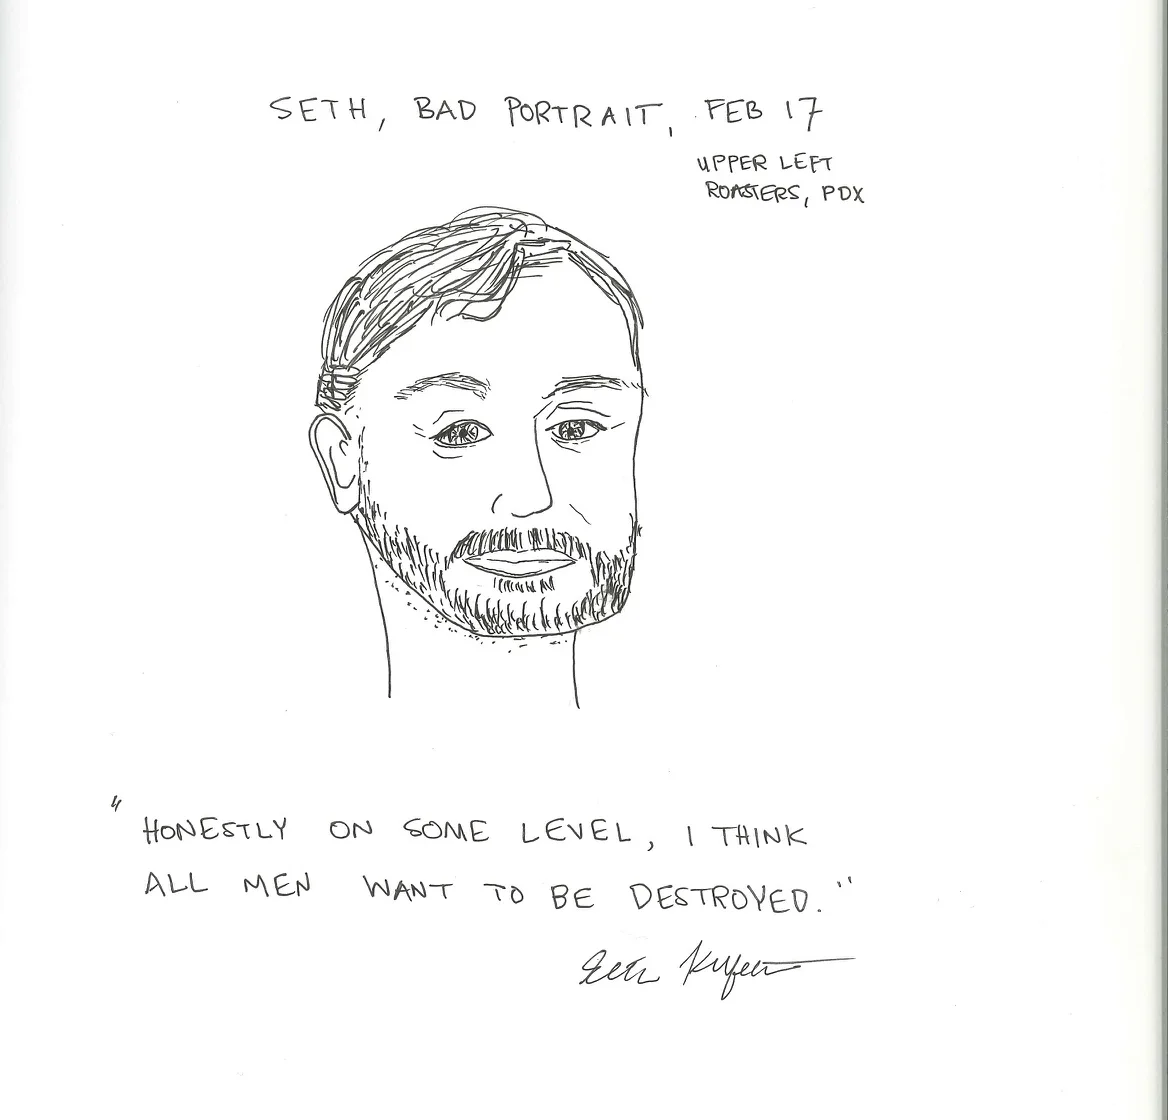 SETH, BAD PORTRAIT, FEB 17
UPPER LEFT
ROASTERS, PDX
"HONESTLY ON SOME LEVEL, I THINK
ALL MEN WANT TO BE DESTROYED."
Seth